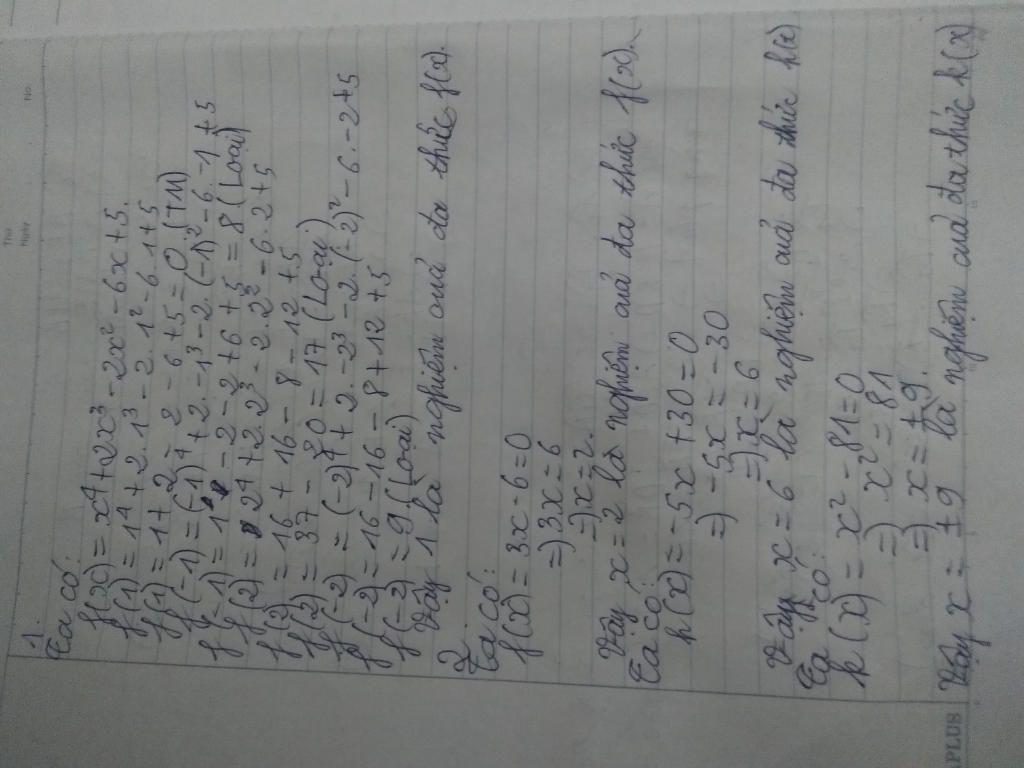 Thứ
Ngày
No.
1.
Ta có:
f(x) = x⁴ + 2x³ - 2x² - 6x + 5.
f(1) = 1⁴ + 2.1³ - 2.1² - 6.1 + 5
f(1) = 1 + 2 - 2 - 6 + 5 = 0 (TM)
f(-1) = (-1)⁴ + 2.-1³ - 2.(-1)² - 6.-1 + 5
f(-1) = 1 - 2 - 2 + 6 + 5 = 8 (Loại)
f(2) = 2⁴ + 2.2³ - 2.2² - 6.2 + 5
f(2) = 16 + 16 - 8 - 12 + 5
f(2) = 37 - 20 = 17 (Loại)
f(-2) = (-2)⁴ + 2.-2³ - 2.(-2)² - 6.-2 + 5
f(-2) = 16 - 16 - 8 + 12 + 5
f(-2) = 9 (Loại)
Vậy 1 là nghiệm của đa thức f(x).
2.
Ta có:
f(x) = 3x - 6 = 0
=) 3x = 6
=) x = 2.
Vậy x = 2 là nghiệm của đa thức f(x).
Ta có:
h(x) = -5x + 30 = 0
=) -5x = -30
=) x = 6
Vậy x = 6 là nghiệm của đa thức h(x)
Ta có:
k(x) = x² - 81 = 0
=) x² = 81
=) x = ±9.
Vậy x = ±9 là nghiệm của đa thức k(x)